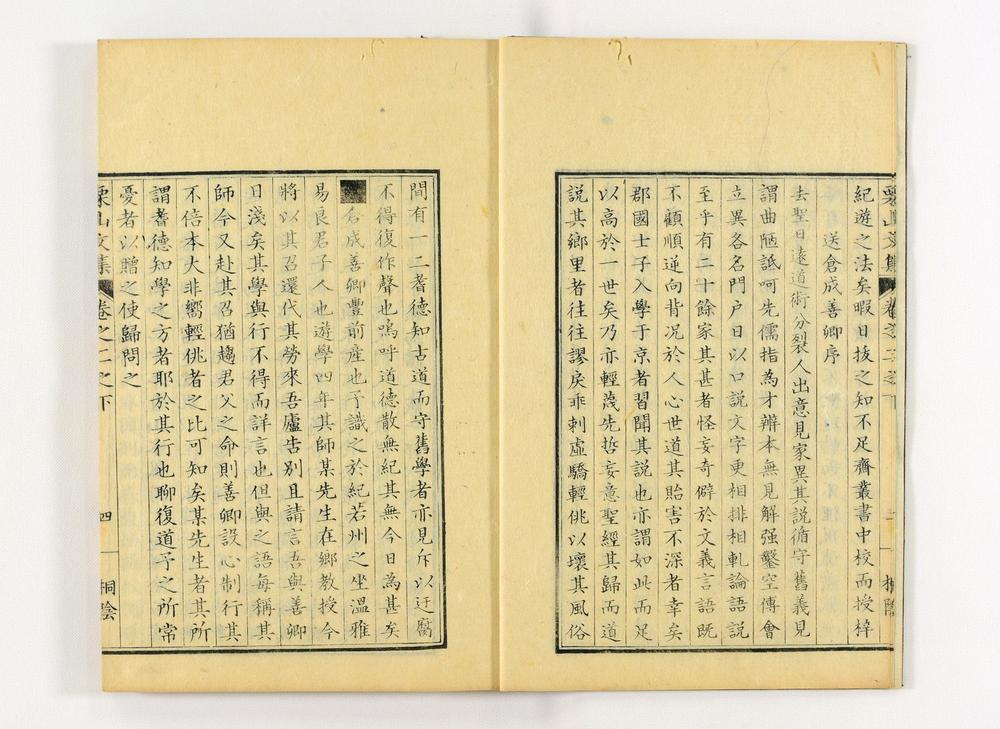 紀遊之法矣暇日抜之知不足齋叢書中校而授梓
送倉成善卿序
去聖日遠道術分裂人出意見家異其説循守舊義見
謂曲陋詆呵先儒指為才辨本無見解强鑿空傅會
立異各名門户日以口説文字更相排相軋論語説
至乎有二十餘家其甚者怪妄奇僻於文義言語既
不顧順逆向背况於人心世道其貽害不深者幸矣
郡國士子入學于京者習聞其説也亦謂如此而足
以高於一世矣乃亦輕蔑先哲妄意聖經其歸而道
説其郷里者往往謬戾乖剌虚驕輕佻以壞其風俗
間有一二耆德知古道而守舊學者亦見斥以迂腐
不得復作聲也嗚呼道德散無紀其無今日為甚矣
倉成善卿豐前産也予識之於紀若州之坐温雅
易良君子人也遊學四年其師某先生在郷教授今
將以其召還代其勞來吾廬告别且請言吾與善卿
日淺矣其學與行不得而詳言也但與之語每稱其
師今又赴其召猶趨君父之命則善卿設心制行其
不倍本大非嚮輕佻者之比可知矣某先生者其所
謂耆德知學之方者耶於其行也聊復道予之所常
憂者以贈之使歸問之
栗山文集 卷之二之下 四 桐陰